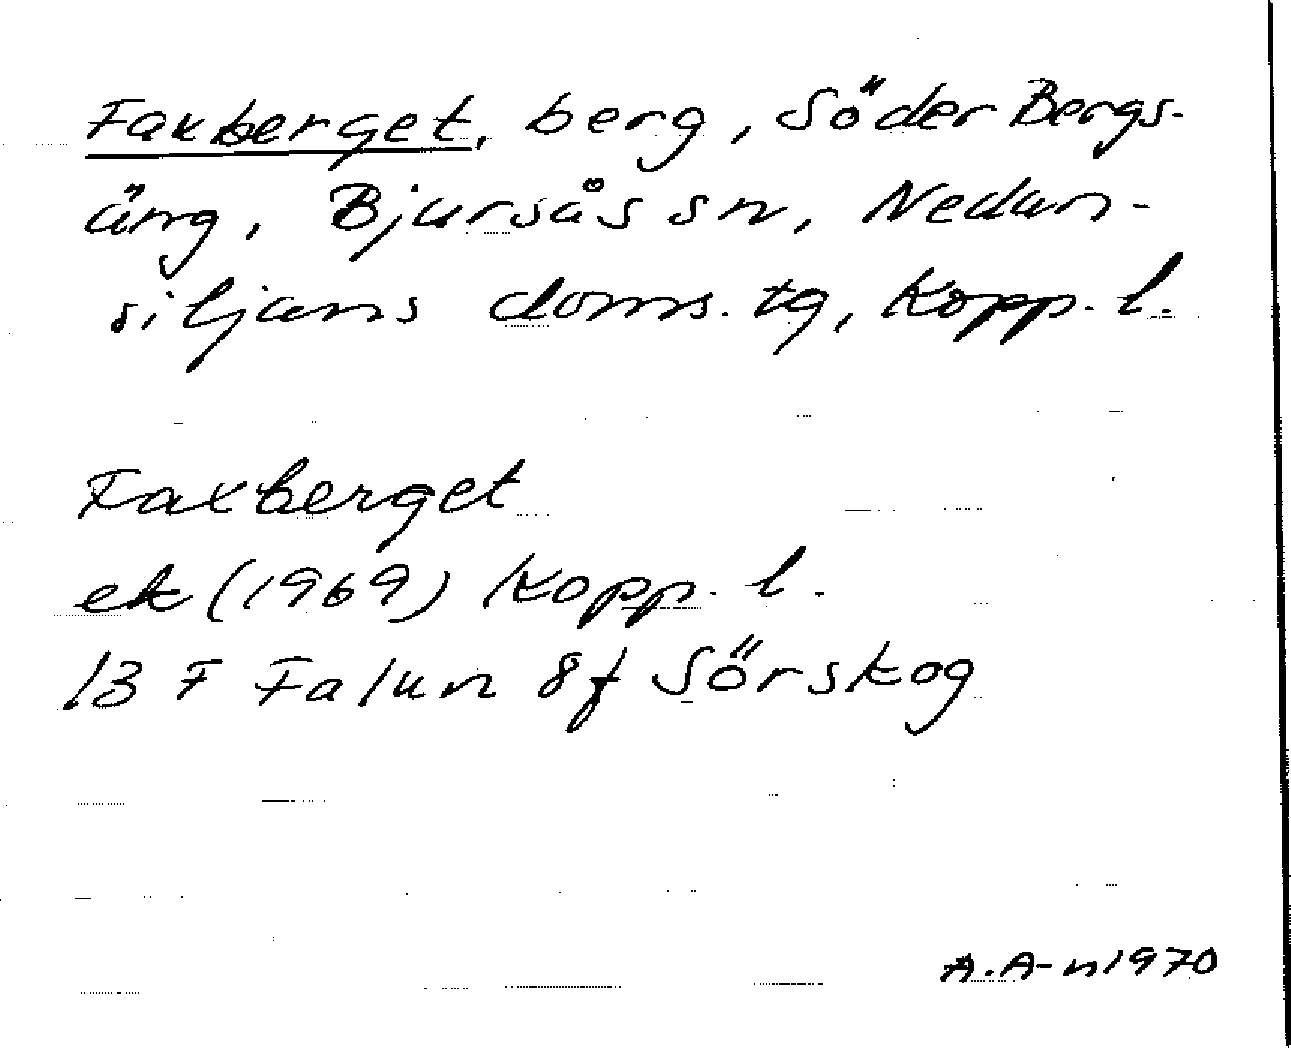 Faxberget, berg, Söder Bergs-
äng, Bjursås sn, Nedan-
siljans doms. tg, Kopp. l.
Faxberget
ek (1969) Kopp. l.
13 F Falun 8f Sörskog
A. A-n 1970